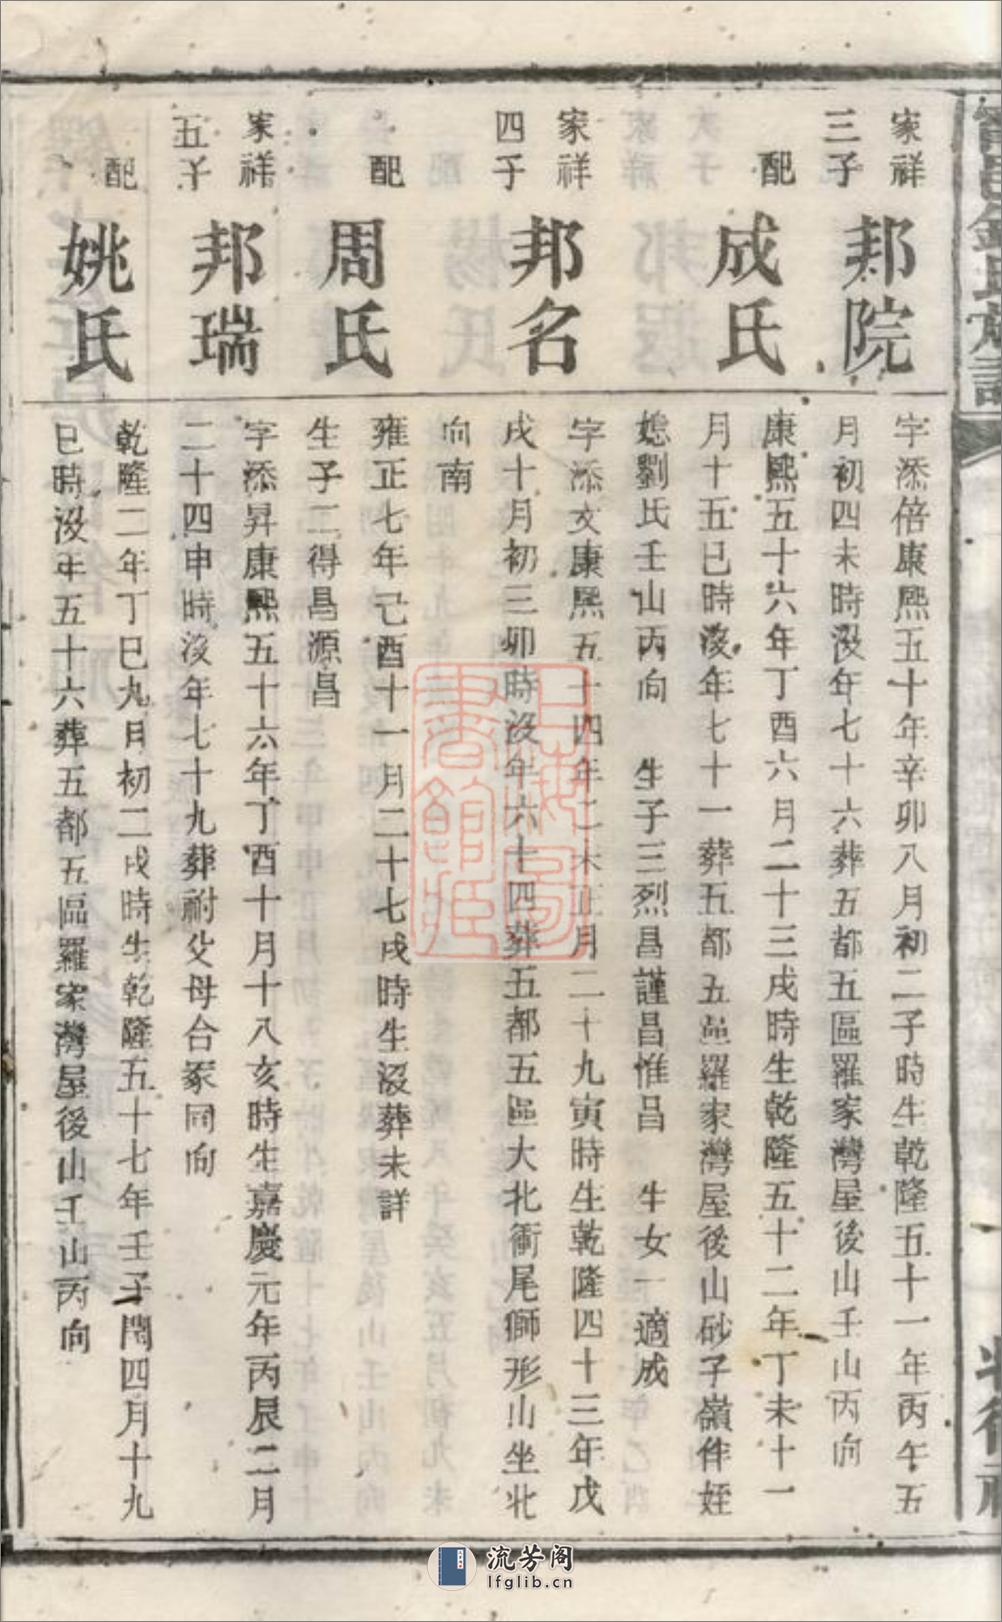 家祥
三子
邦院
字添倍康熙五十年辛卯八月初二子時生乾隆五十一年丙午五
月初四未時沒年七十六葬五都五區羅家灣屋後山壬山丙向
配
成氏
康熙五十六年丁酉六月二十三戌時生乾隆五十二年丁未十一
月十五巳時沒年七十一葬五都五區羅家灣屋後山砂子嶺伴姪
媳劉氏壬山丙向 生子三烈昌謹昌惟昌 生女一適成
家祥
四子
邦名
字添文康熙五十四年乙未正月二十九寅時生乾隆四十三年戊
戌十月初三卯時沒年六十四葬五都五區大北衝尾獅形山坐北
向南
配
周氏
雍正七年己酉十一月二十七戌時生沒葬未詳
生子二得昌源昌
家祥
五子
邦瑞
字添昇康熙五十六年丁酉十月十八亥時生嘉慶元年丙辰二月
二十四申時沒年七十九葬祔父母合冢同向
配
姚氏
乾隆二年丁巳九月初二戌時生乾隆五十七年壬子閏四月十九
巳時沒年五十六葬五都五區羅家灣屋後山壬山丙向
上海圖
書館藏
流芳阁
lfglib.cn